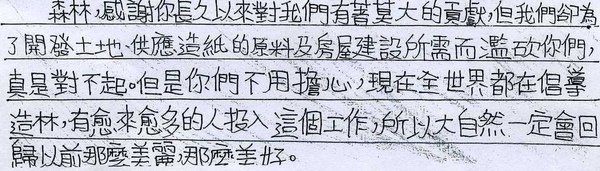 森林，感謝你長久以來對我們有著莫大的貢獻，但我們卻為
了開發土地、供應造紙的原料及房屋建設所需而濫砍你們，
真是對不起。但是你們不用擔心，現在全世界都在倡導
造林，有愈來愈多的人投入這個工作，所以大自然一定會回
歸以前那麼美麗，那麼美好。